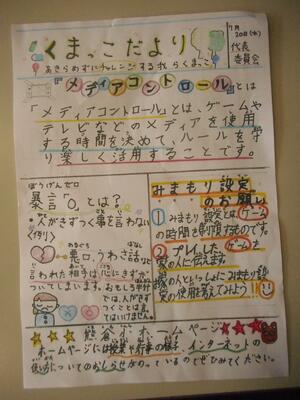 くまっこだより
7月
20日(水)
代表
委員会
あきらめずにチャレンジするわれらくまっこ
『メディアコントロール』とは
「メディアコントロール」とは、ゲームや
テレビなどのメディアを使用
する時間を決めて、ルールを守
り楽しく活用することです。
ぼうげんゼロ
暴言「0」とは?
・人がきずつく事を言わない
〈例〉
悪口、うわさ話など
言われた相手は心にきずが
ついてしまいます。おもしろ半分
では、人がきず
つくことは言っ
てはいけません。
みまもり設定
のお願い
① みまもり設定とは、ゲーム
の時間を制限するものです。
② プレイしたゲームを
家の人に伝えます。
家の人といっしょにみまもり設
定の使用を考えてみよう
熊谷小ホームページ
ホームページには授業や行事の様子、インターネットの
使い方についてのおしらせがのっているのでぜひみてください。